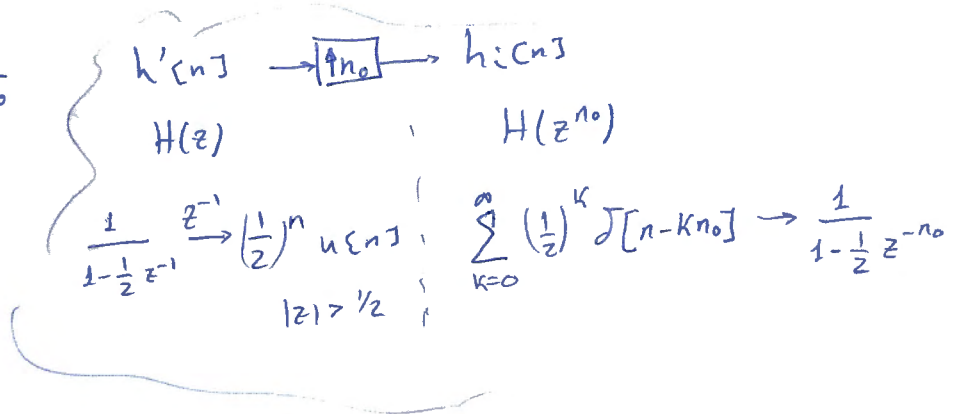 h'[n] → ↑n₀ → hi[n]
H(z) H(z^{n₀})
\frac{1}{1-\frac{1}{2}z^{-1}} \xrightarrow{z^{-1}} (\frac{1}{2})^n u[n] \sum_{k=0}^{\infty} (\frac{1}{2})^k δ[n-kn₀] → \frac{1}{1-\frac{1}{2}z^{-n₀}}
|z| > 1/2